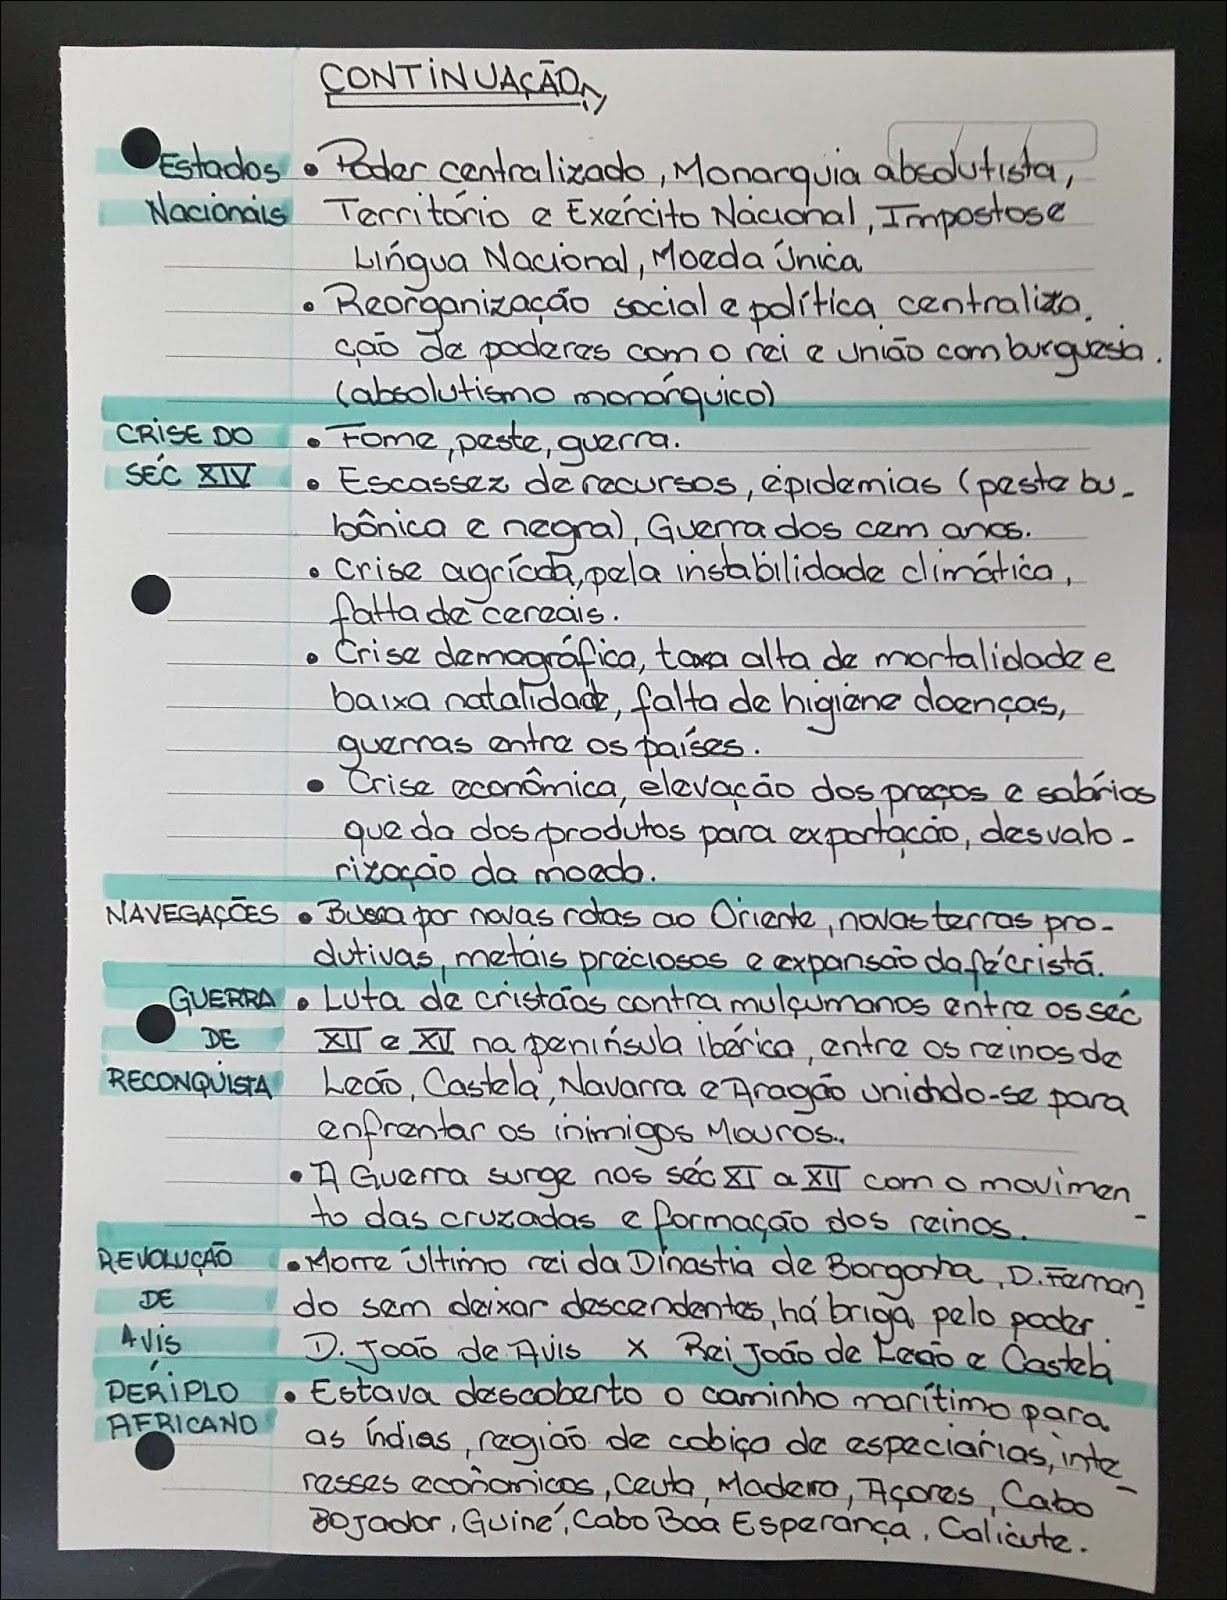 CONTINUAÇÃO
Estados • Poder centralizado, Monarquia absolutista,
Nacionais Território e Exército Nacional, Impostos e
Língua Nacional, Moeda única
• Reorganização social e política centraliza.
ção de poderes com o rei e união com burguesia.
(absolutismo monárquico)
CRISE DO • Fome, peste, guerra.
SÉC XIV • Escassez de recursos, epidemias (peste bu-
bônica e negra), Guerra dos cem anos.
• Crise agrícola, pela instabilidade climática,
falta de cereais.
• Crise demográfica, taxa alta de mortalidade e
baixa natalidade, falta de higiene doenças,
guerras entre os países.
• Crise econômica, elevação dos preços e salários
queda dos produtos para exportação, desvalo-
rização da moeda.
NAVEGAÇÕES • Busca por novas rotas ao Oriente, novas terras pro-
dutivas, metais preciosos e expansão da fé cristã.
GUERRA • Luta de cristãos contra mulçumanos entre os séc
DE XII e XV na península ibérica, entre os reinos de
RECONQUISTA Leão, Castela, Navarra e Aragão unindo-se para
enfrentar os inimigos Mouros..
• A Guerra surge nos séc XI a XII com o movimen-
to das cruzadas e formação dos reinos.
REVOLUÇÃO • Morre último rei da Dinastia de Borgonha, D. Fernan-
DE do sem deixar descendentes, há briga pelo poder.
AVIS D. João de Avis X Rei João de Leão e Castela
PERÍPLO • Estava descoberto o caminho marítimo para
AFRICANO as índias, região de cobiça de especiarias, inte-
resses econômicos, Ceuta, Madeira, Açores, Cabo
Bojador, Guiné, Cabo Boa Esperança, Calicute.